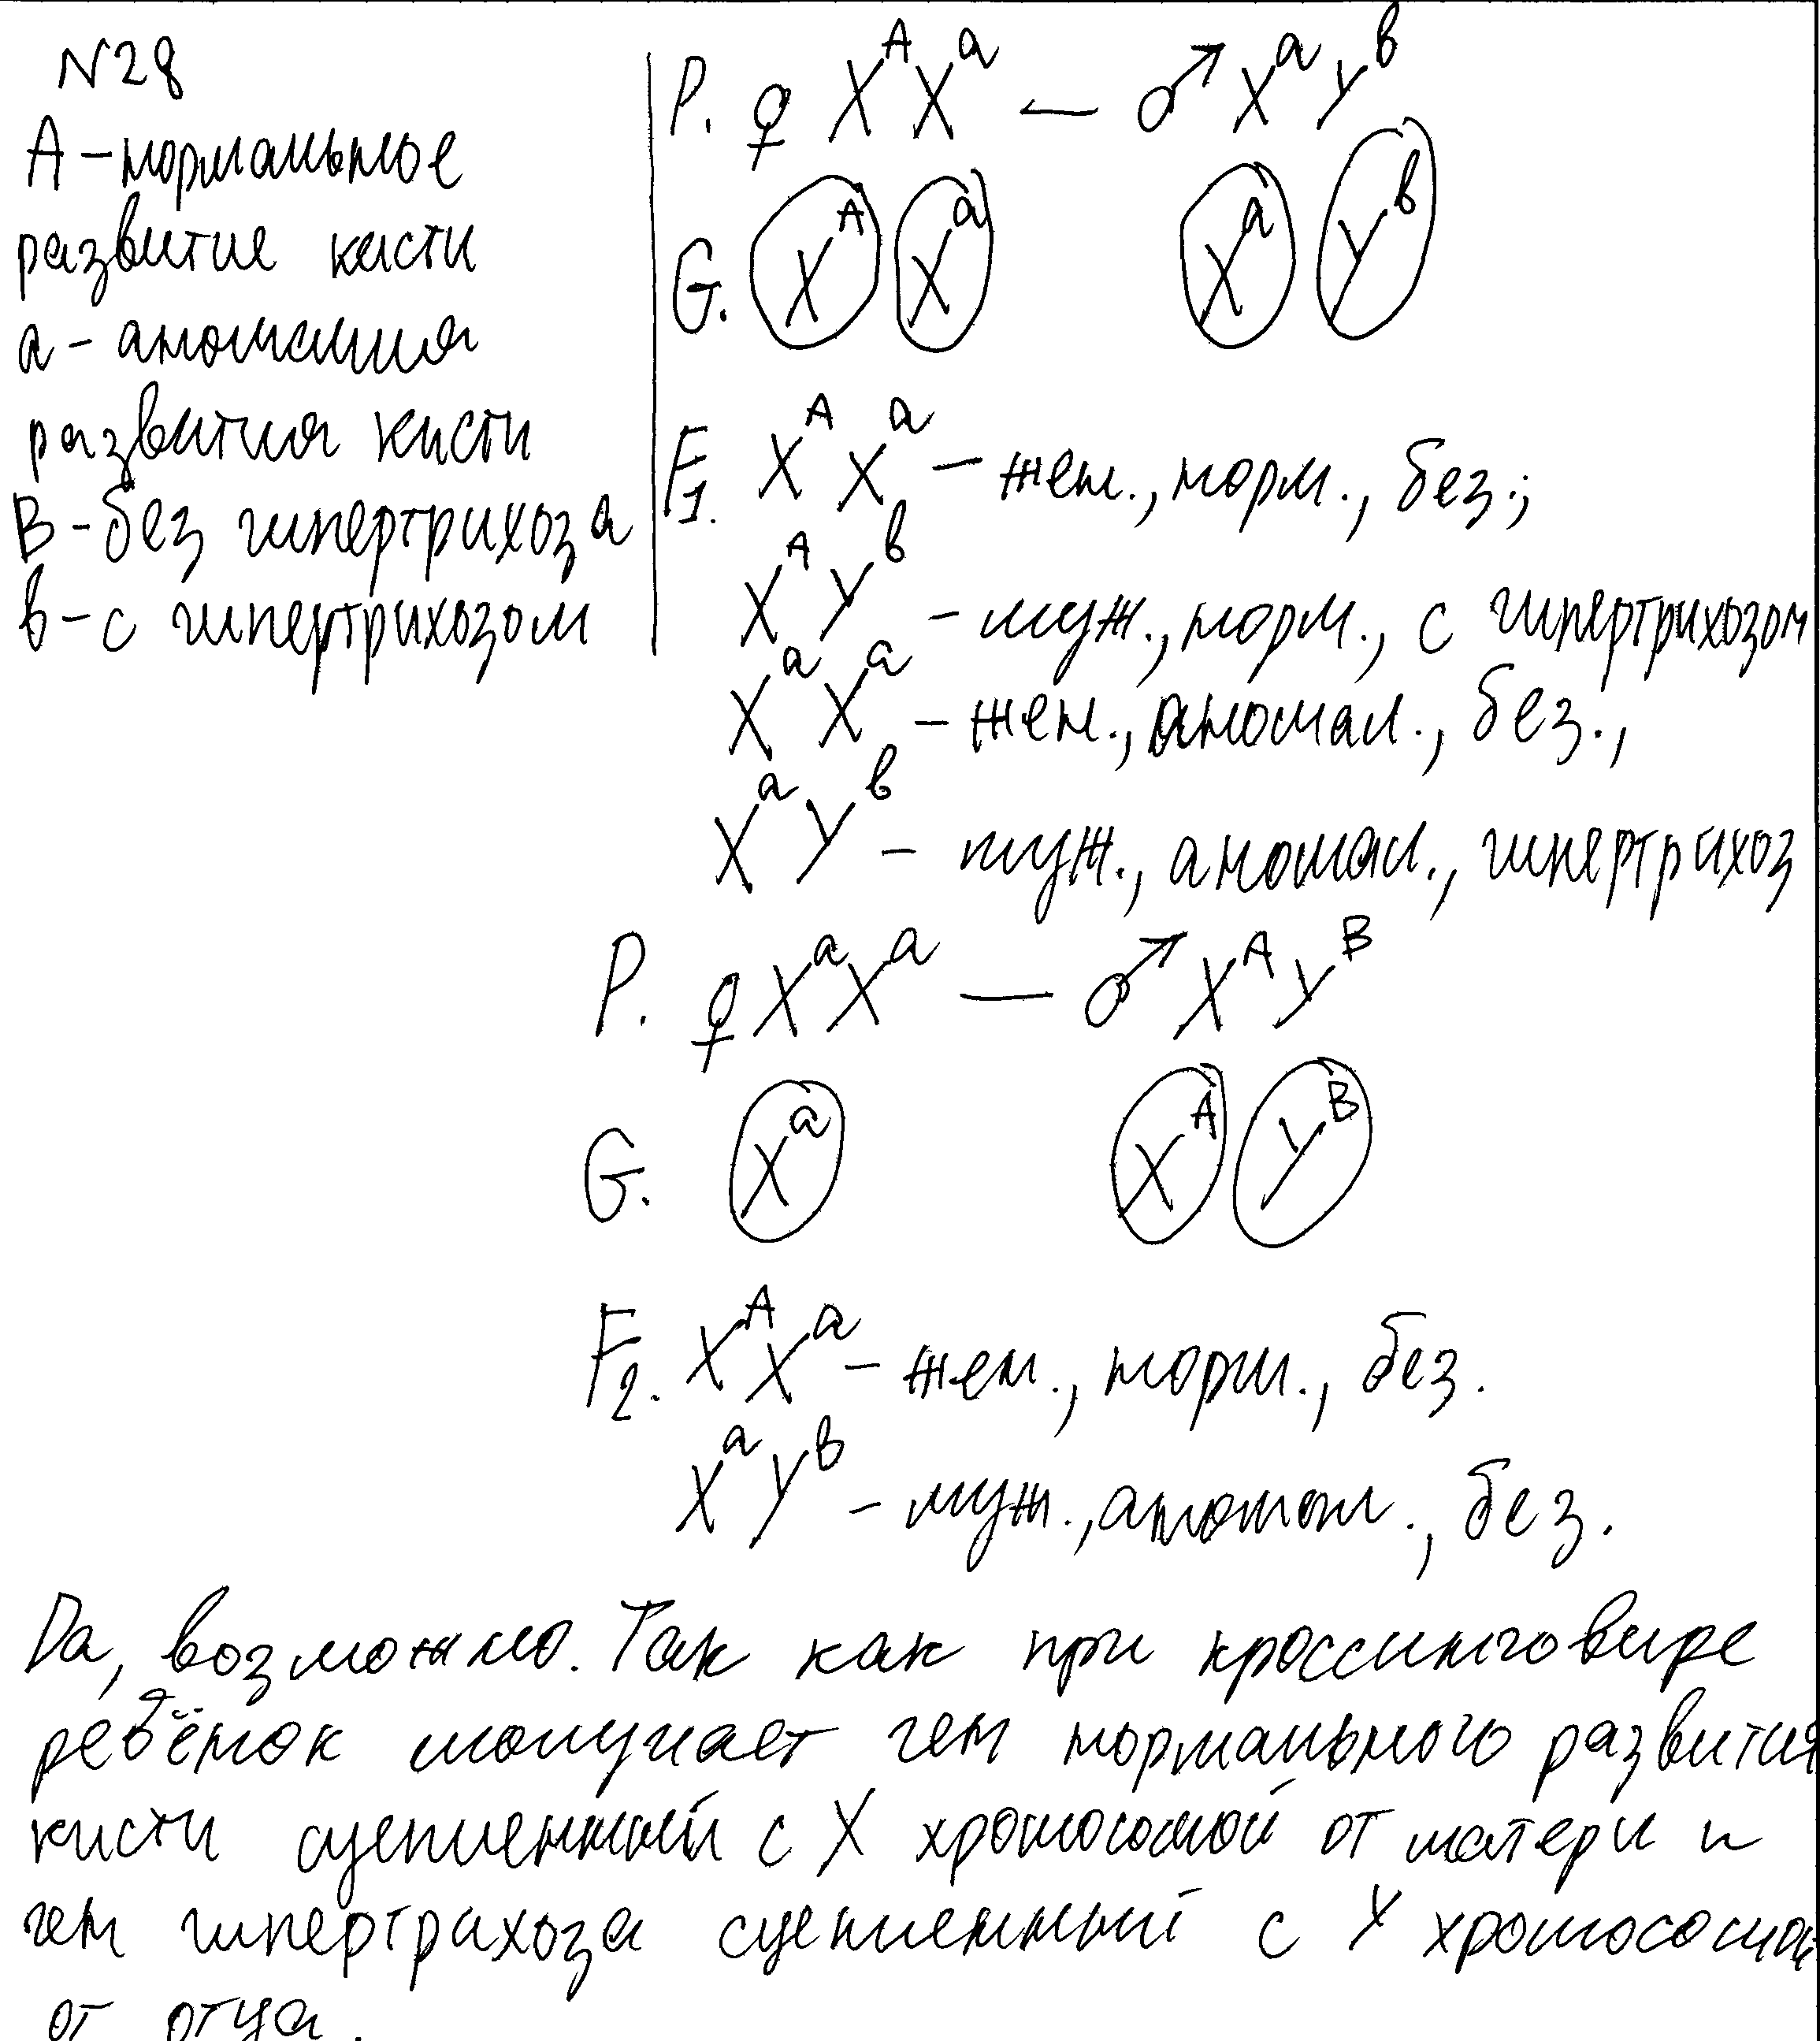 N28
А – нормальное
развитие кисти
а – аномалия
развития кисти
В – без гипертрихоза
в – с гипертрихозом
P. ♀ X^A X^a — ♂ X^a Y^в
G. X^A X^a X^a Y^в
F1. X^A X^a – жен., норм., без.;
X^A Y^в – муж., норм., с гипертрихозом
X^a X^a – жен., аномал., без.,
X^a Y^в – муж., аномал., гипертрихоз
P. ♀ X^a X^a — ♂ X^A Y^B
G. X^a X^A Y^B
F2. X^A X^a – жен., норм., без.
X^a Y^B – муж., аномал., без.
Да, возможно. Так как при кроссинговире
ребёнок получает ген нормального развития
кисти сцепленный с X хромосомой от матери и
ген гипертрахоза сцепленный с Y хромосомой
от отца.